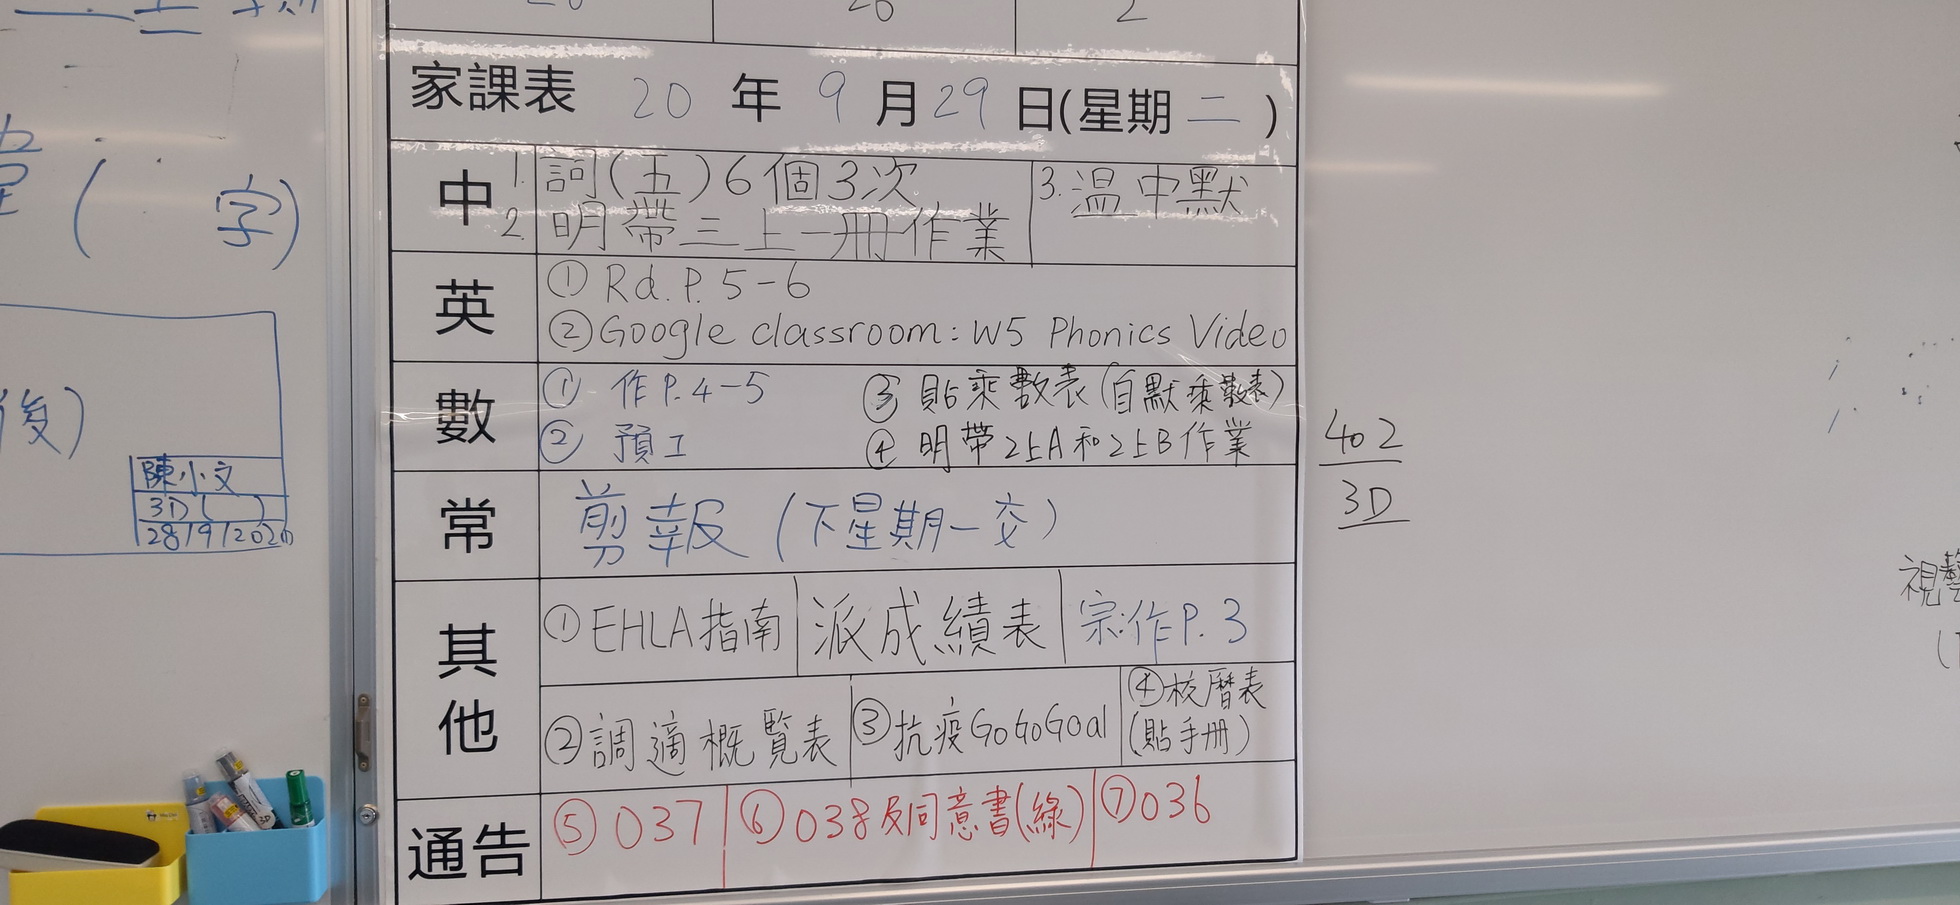 字)
後)
陳小文
3D ( )
28/9/2020
26
2
家課表 20 年 9 月 29 日(星期 二 )
中 1. 詞(五)6個3次
2. 明帶三上一冊作業
3. 温中默
英 ① Rd. P. 5-6
② Google classroom: W5 Phonics Video
數 ① 作P.4-5 ③ 貼乘數表(自默乘數表)
② 預工 ④ 明帶2上A和2上B作業
常 剪報(下星期一交)
其他 ① EHLA指南 派成績表 宗:作P.3
② 調適概覽表 ③ 抗疫GoGoGoal ④ 校曆表
(貼手冊)
通告 ⑤ 037 ⑥ 038及同意書(綠) ⑦ 036
402
3D
視藝